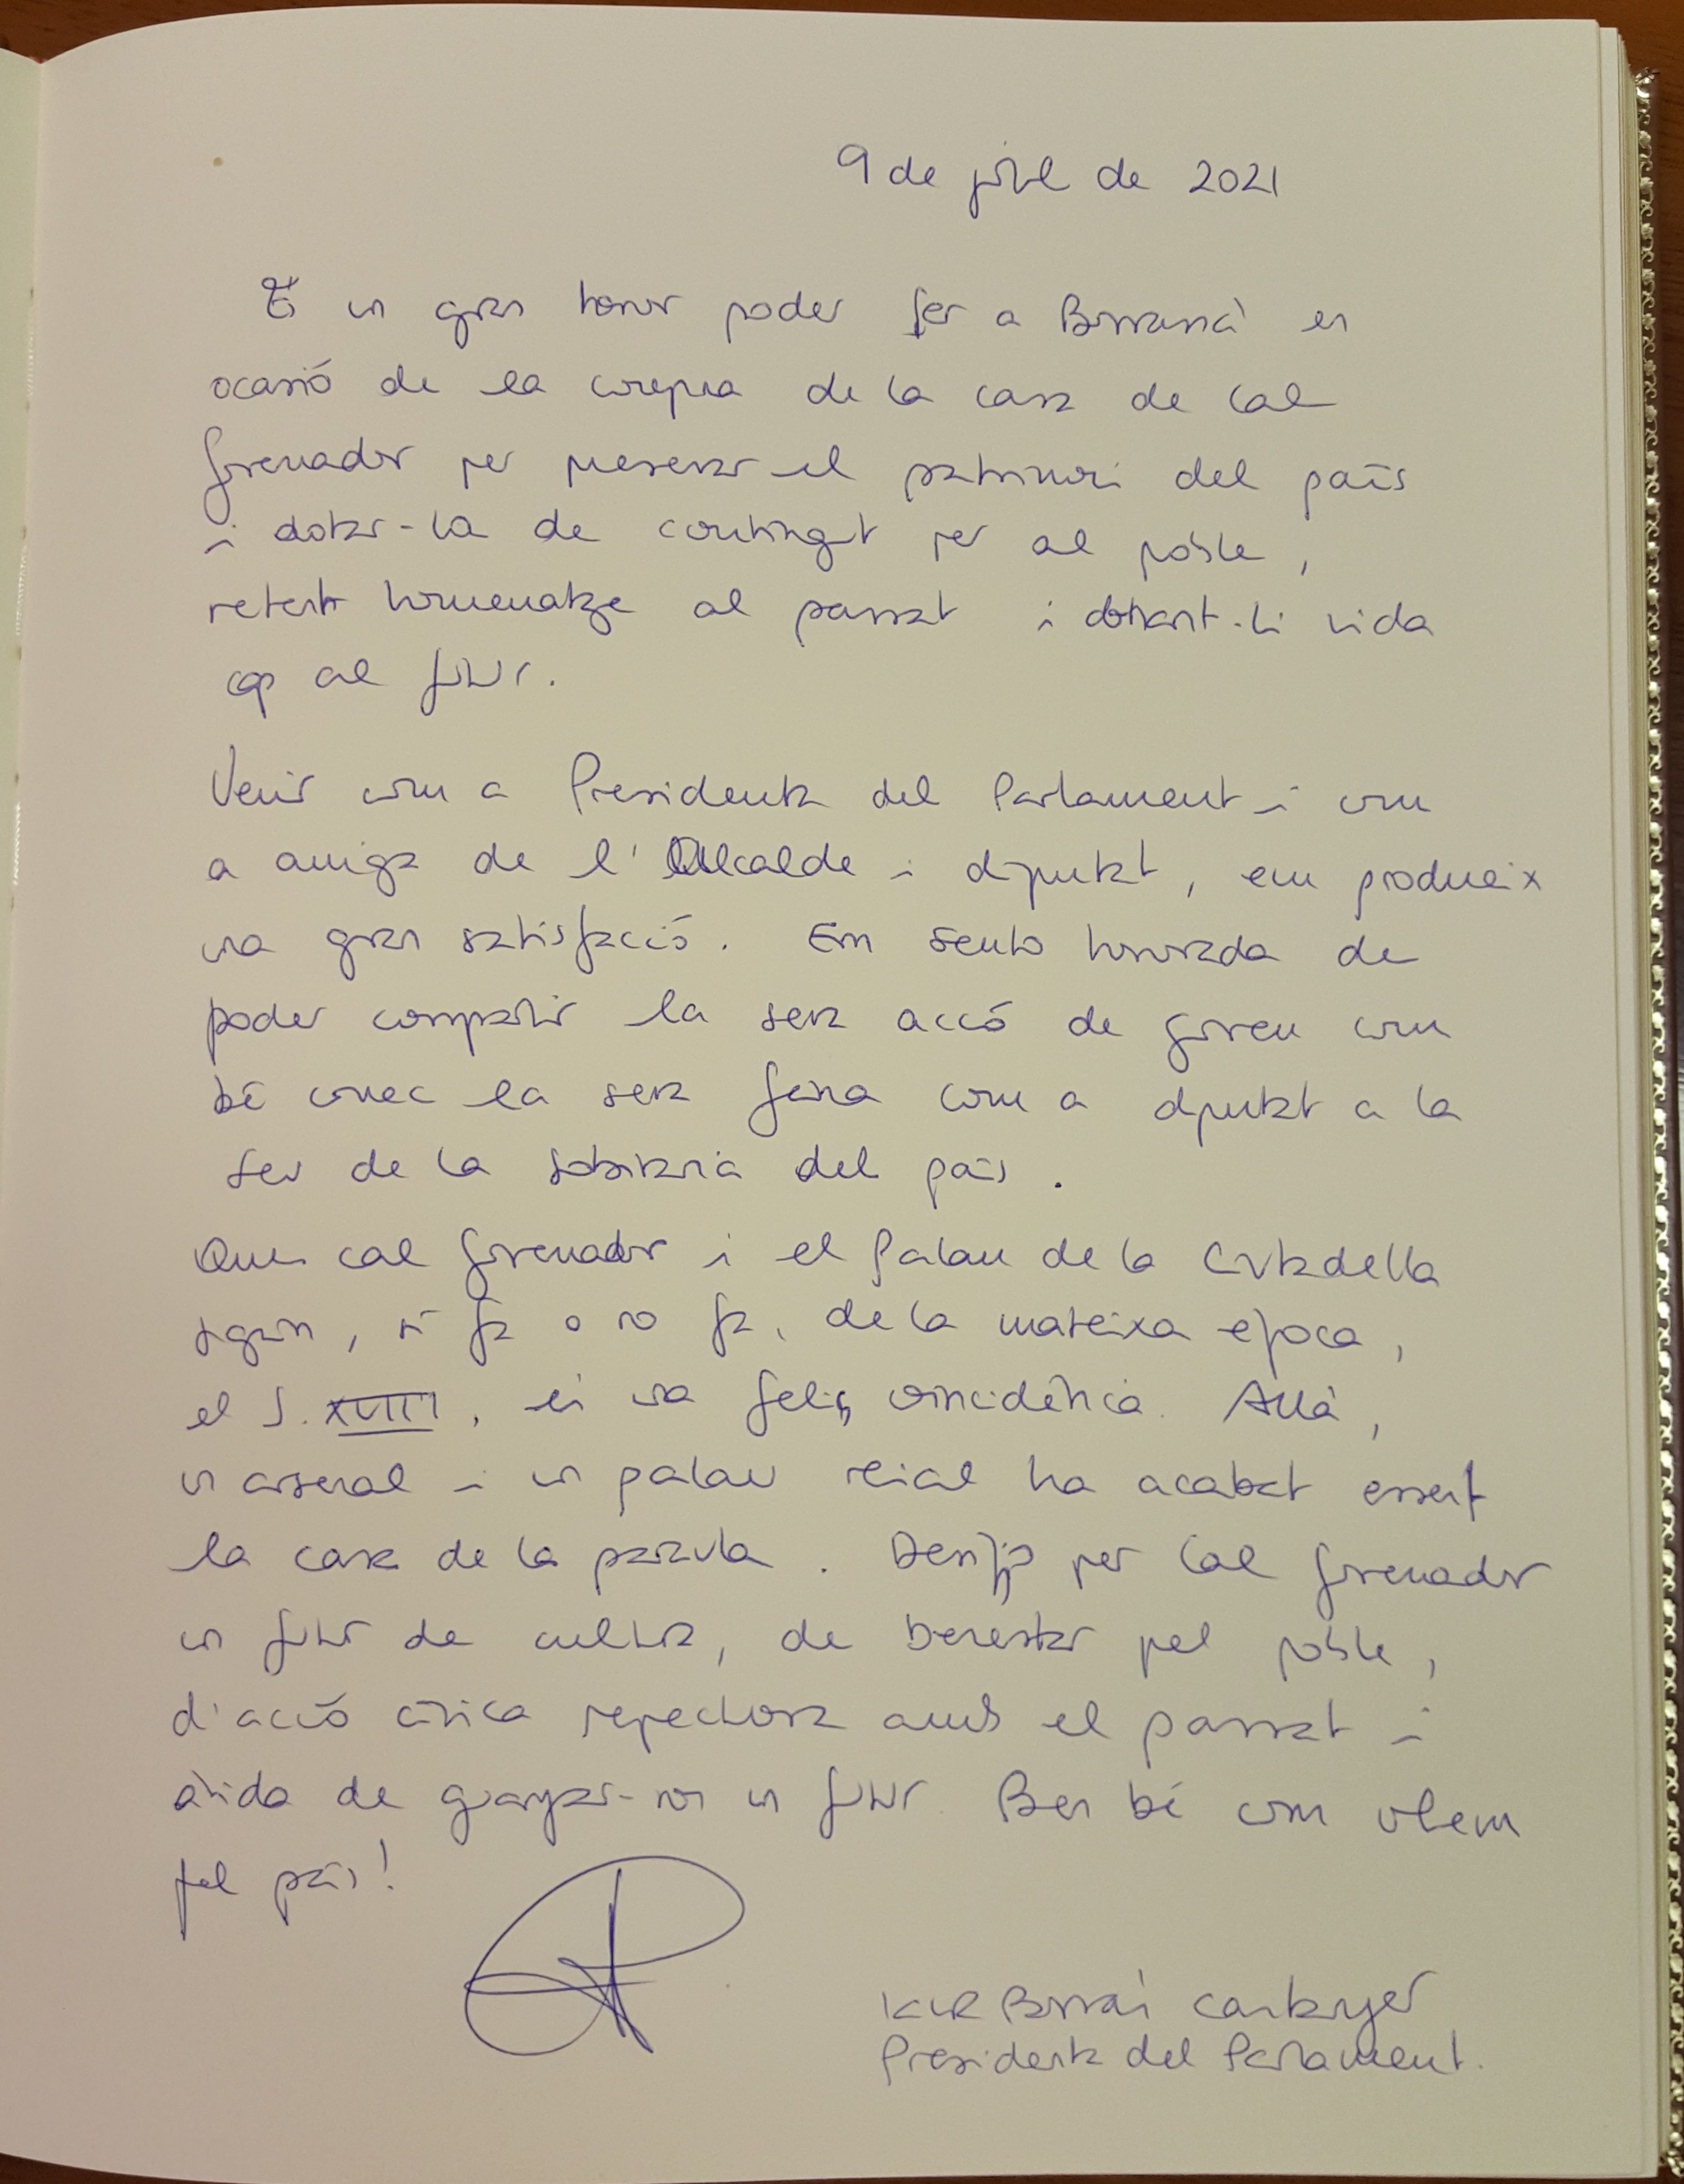 9 de juliol de 2021
És un gran honor poder ser a Borrassà en
ocasió de la compra de la casa de Cal
Governador per preservar el patrimoni del país
i dotar-la de contingut per al poble,
retent homenatge al passat i dotant-li vida
cap al futur.
Venir com a Presidenta del Parlament i com
a amiga de l'Alcalde i diputat, em produeix
una gran satisfacció. Em sento honorada de
poder compartir la seva acció de govern com
bé conec la seva feina com a diputat a la
seu de la sobirania del país.
Que Cal Governador i el Palau de la Ciutadella
siguin, si fa o no fa, de la mateixa època,
el S. XVIII, és una feliç coincidència. Allà,
un arsenal i un palau reial ha acabat essent
la casa de la paraula. Desitjo per Cal Governador
un futur de cultura, de benestar pel poble,
d'acció cívica respectuosa amb el passat i
àvida de guanyar-nos un futur. Ben bé com volem
pel país!
Borràs Castanyer
Presidenta del Parlament.